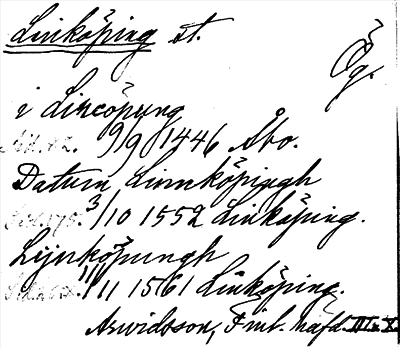 Linköping st.
Ög.
i Lincöpung
9/9 1446 Åbo.
Datum Linnköpingh
3/10 1552 Linköping.
Lijnköpungh
1/11 1561 Linköping.
Arwidsson, Finl. häfd. III o. X.